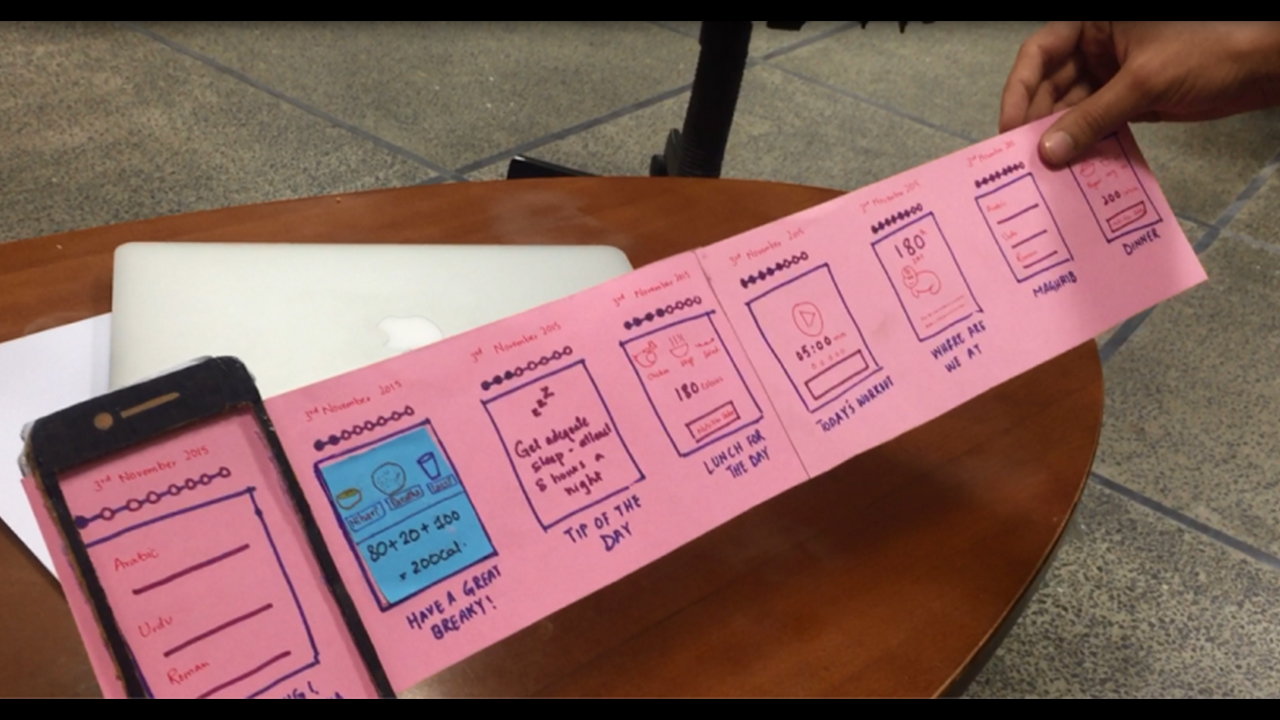 3rd November 2015
Arabic
Urdu
Roman
3rd November 2015
Nihari
Paratha
Lassi
80+20+100
= 200Cal.
HAVE A GREAT
BREAKY!
3rd November 2015
zzZ
Get adequate
sleep - atleast
8 hours a
night
TIP OF THE
DAY
3rd November 2015
Chicken
Soup
Salad
180 Calories
LUNCH FOR
THE DAY
3rd November 2015
05:00 min
TODAY'S WORKOUT
3rd November 2015
180
DAY
WHERE ARE
WE AT
3rd November 2015
Arabic
Urdu
Roman
MAGHRIB
200
DINNER